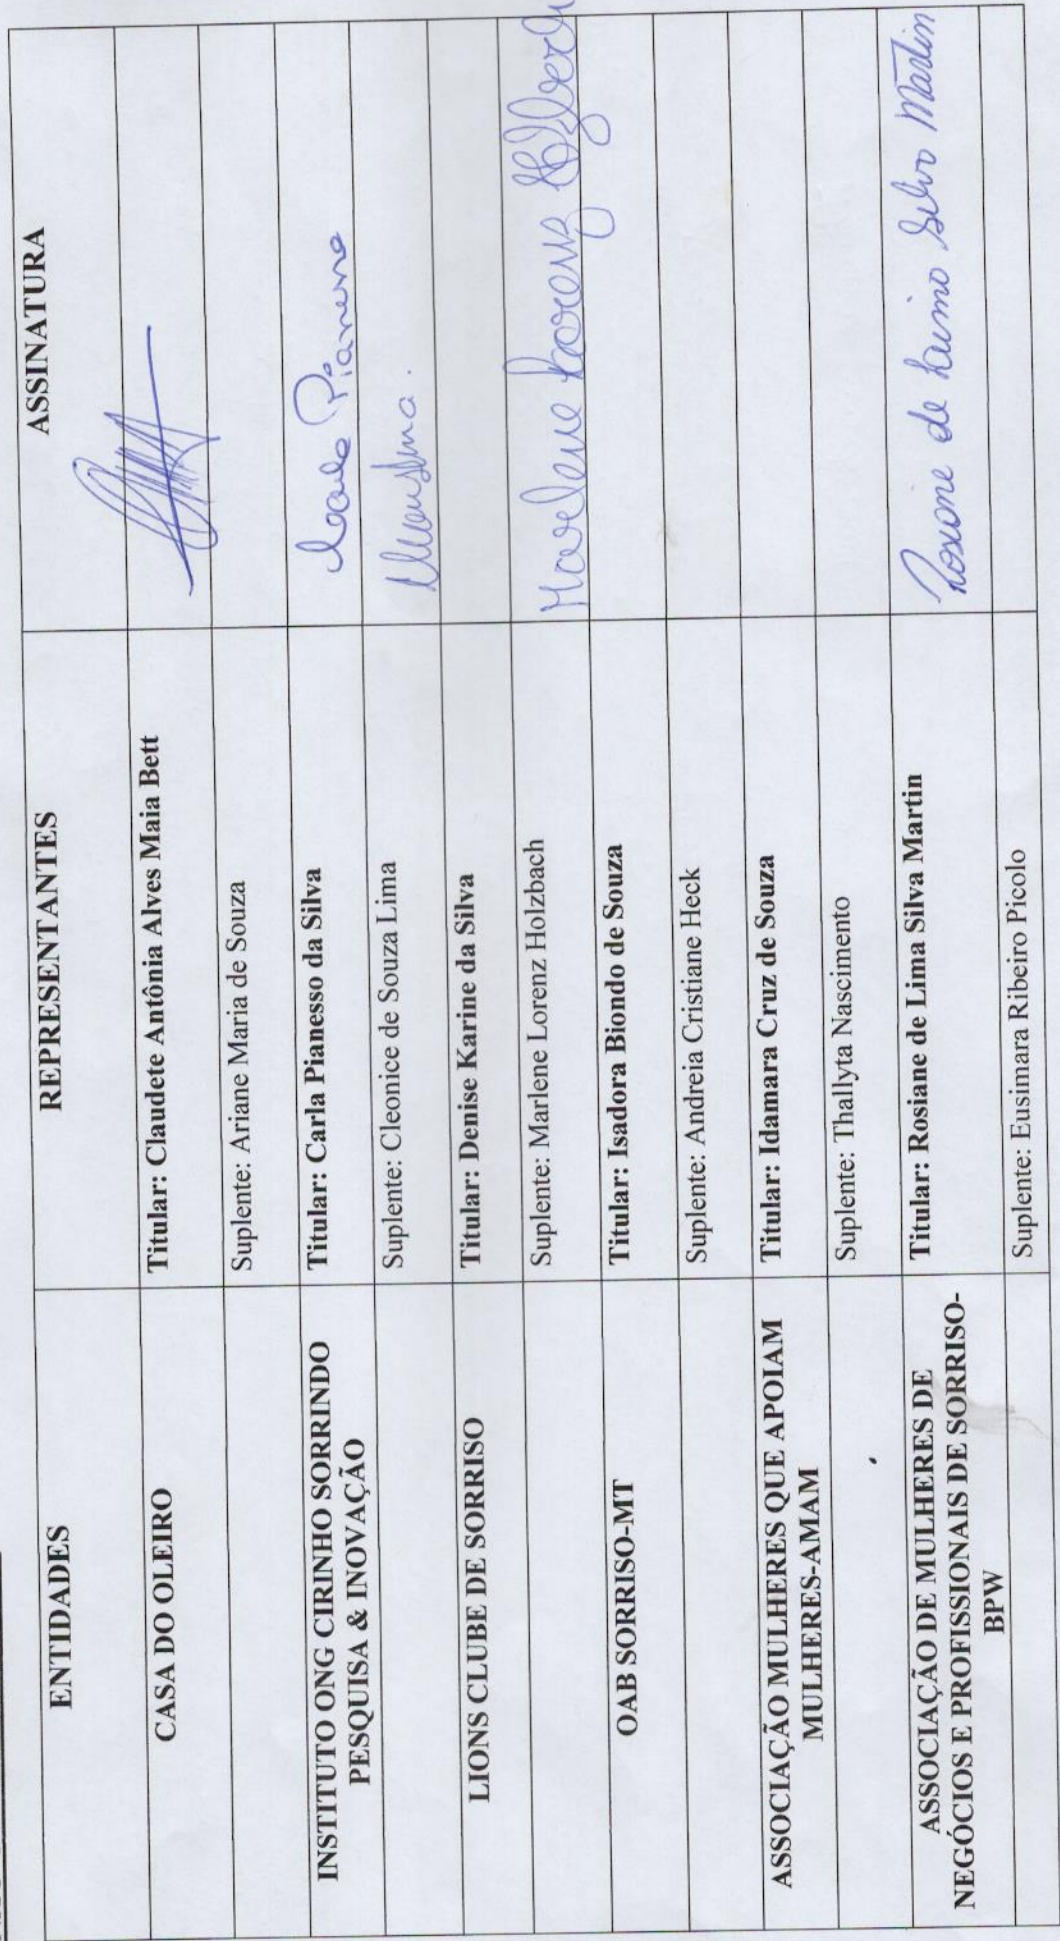 ENTIDADES REPRESENTANTES ASSINATURA
CASA DO OLEIRO Titular: Claudete Antônia Alves Maia Bett
Suplente: Ariane Maria de Souza
INSTITUTO ONG CIRINHO SORRINDO
PESQUISA & INOVAÇÃO
Titular: Carla Pianesso da Silva
Suplente: Cleonice de Souza Lima
LIONS CLUBE DE SORRISO Titular: Denise Karine da Silva
Suplente: Marlene Lorenz Holzbach Marlene Lorenz
OAB SORRISO-MT Titular: Isadora Biondo de Souza
Suplente: Andreia Cristiane Heck
ASSOCIAÇÃO MULHERES QUE APOIAM
MULHERES-AMAM
Titular: Idamara Cruz de Souza
Suplente: Thallyta Nascimento
ASSOCIAÇÃO DE MULHERES DE
NEGÓCIOS E PROFISSIONAIS DE SORRISO-
BPW
Titular: Rosiane de Lima Silva Martin Rosiane de Lima Silva Martin
Suplente: Eusimara Ribeiro Picolo